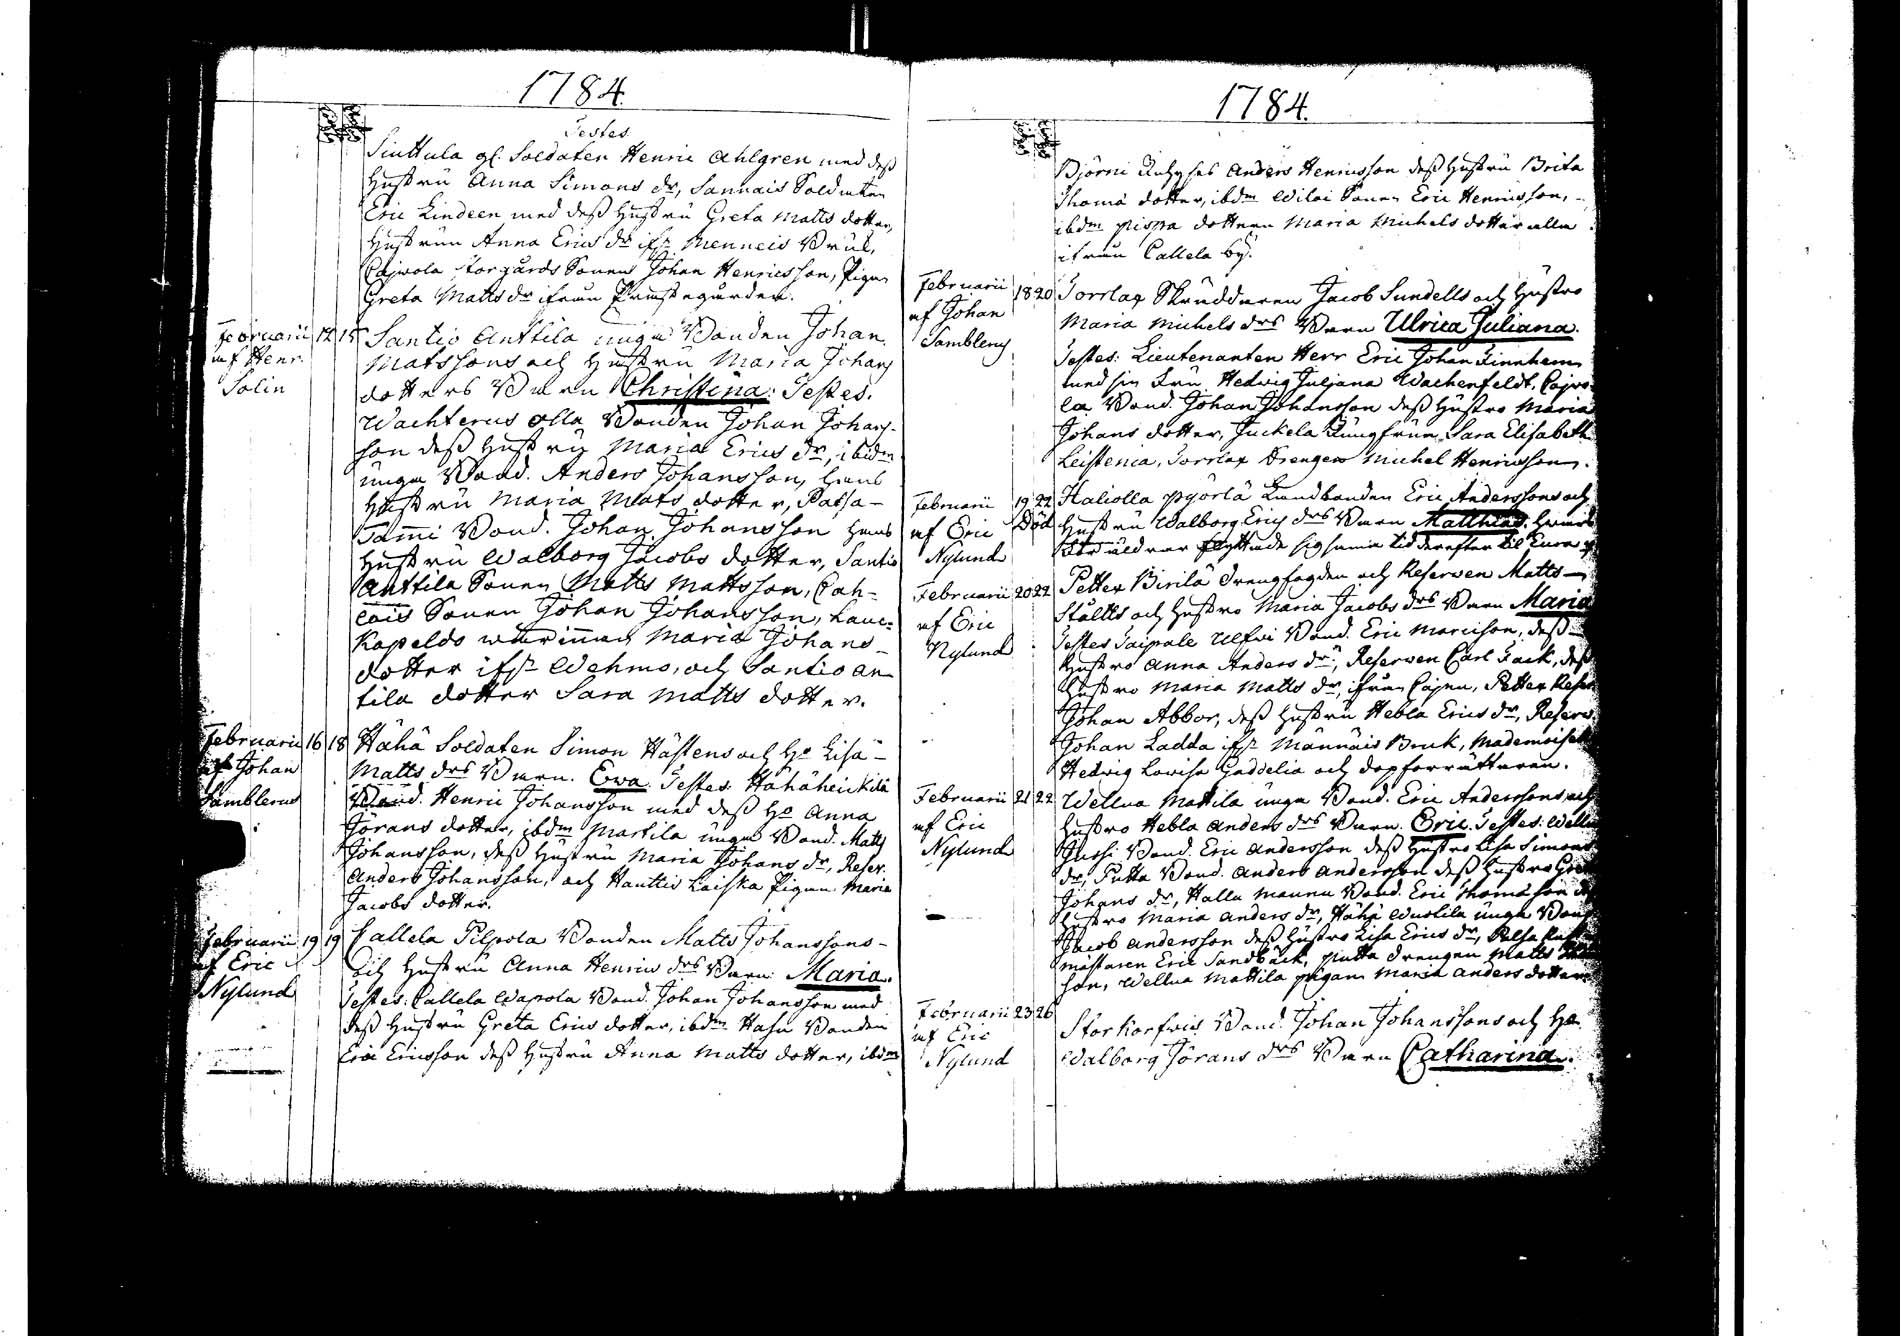 1784.
Testes
Siuttula gl. Soldaten Henric Ahlgren med dess
Hustru Anna Simons dr, Sannais Soldaten
Eric Lindeen med dess Hustru Greta Matts dotter,
Hustrun Anna Erics dr ifr Menneis Bruk,
Cajwola Storgårds Sonen Johan Henricsson, Pigan
Greta Matts dr ifrån Prästegården.
Februarii 12 15 Santio Anttila unga Bonden Johan
af Henr. Matssons och Hustru Maria Johans
Solin dotters Barn Christina: Testes.
Wachterus olla Bonden Johan Johans-
son dess Hustru Maria Erics dr, ibidm
unga Bond. Anders Johansson, hans
Hustru Maria Mats dotter, Patsa-
Tammi Bond. Johan Johansson hans
Hustru Walborg Jacobs dotter, Santio
Anttila Sonen Matts Mattsson, Cah-
lais Sonen Johan Johansson, Lauc-
Kapelds Maria Johans-
dotter ifr Wehmo, och Santio An
tila dotter Sara Matts dotter.
Februarii 16 18 Hähä Soldaten Simon Hästens och Ho Lisa-
af Johan Matts drs Barn. Ewa. Testes. Hähäheickilä
Samblerus Bond. Henric Johansson med dess Ho Anna
Jörans dotter, ibdm Martila unga Bond. Matts
Johansson, dess Hustru Maria Johans dr, Reser.
Anders Johansson, och Hauttis Laiska Pigan Maria
Jacobs dotter.
Februarii 19 19 Callela Pilpola Bonden Matts Johanssons-
af Eric och Hustru Anna Henrics drs Barn: Maria.
Nylund Testes: Callela Wapola Bond. Johan Johansson med
dess Hustru Greta Erics dotter, ibdm Hasu Bonden
Eric Ericsson dess Hustru Anna Matts dotter, ibdm
1784.
Björni Anders Henricsson dess Hustru Brita
Thomä dotter, ibdm Sonen Eric Henricsson,
ibdm pispa dottren Maria Michels dotter alla
ifrån Callela by.
Februarii 18 20 Torrlax Skräddaren Jacob Sundells och Hustro
af Johan Maria Michels drs Barn Ulrica Juliana.
Sambleus Testes: Lieutenanten Herr Eric Johan
med sin Fru Hedwig Juliana Wachenfeldt, Cajwo-
la Bond. Johan Johansson dess Hustro Maria
Johans dotter, Juckela Jungfrun Sara Elisabeth
Leistenia, Torrlax Drengen Michel Henricsson.
Februarii 19 22 Haliolla pyörlä Landbonden Eric Anderssons och
af Eric Död Hustru Walborg Erics drs Barn Matthias. hvars
Nylund föräldrar flyttade sig samma tid derefter til Eura
Februarii 20 22 Petter Birilä Drengfogden och Reserven Matts
af Eric Ståltts och Hustro Maria Jacobs drs Barn Maria
Nylund Testes Taipale Ulfvi Bond. Eric Marcison, dess
Hustro Anna Anders dr, Reserven Carl Fack, dess
Hustro Maria Matts dr, ifrån Cajen, Petter Reser
Johan Abbor, dess Hustru Hebla Erics dr, Reserv.
Johan Ladda ifr Männäis Bruk, Mademoisell
Hedvig Lovisa Gaddelia och dopförrättaren.
Februarii 21 22 Wellua Mattila unga Bond. Eric Anderssons och
af Eric Hustro Hebla Anders drs Barn. Eric. Testes: Wellua
Nylund Jussi Bond. Eric Andersson dess Hustro Lisa Simons
dr, Putta Bond. Anders Andersson dess Hustro Greta
Johans dr, Hallu Maunu Bond. Eric Thomasson dess
Hustro Maria Anders dr, Hähä Uustila unga Bond
Jacob Andersson dess Hustro Lisa Erics dr,
mästaren Eric Sandbäck, putta Drengen Matts
son, Wellua Mattila pigan Maria Anders dotter.
Februarii 23 26 Storkorfvis Bond. Johan Johanssons och Ho
af Eric Walborg Jörans drs Barn Catharina.
Nylund